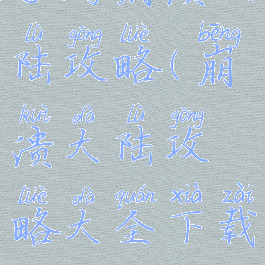 lù gōng lüè bēng
陆攻略(崩
kuì dà lù gōng
溃大陆攻
lüè dà quán xià zài
略大全下载